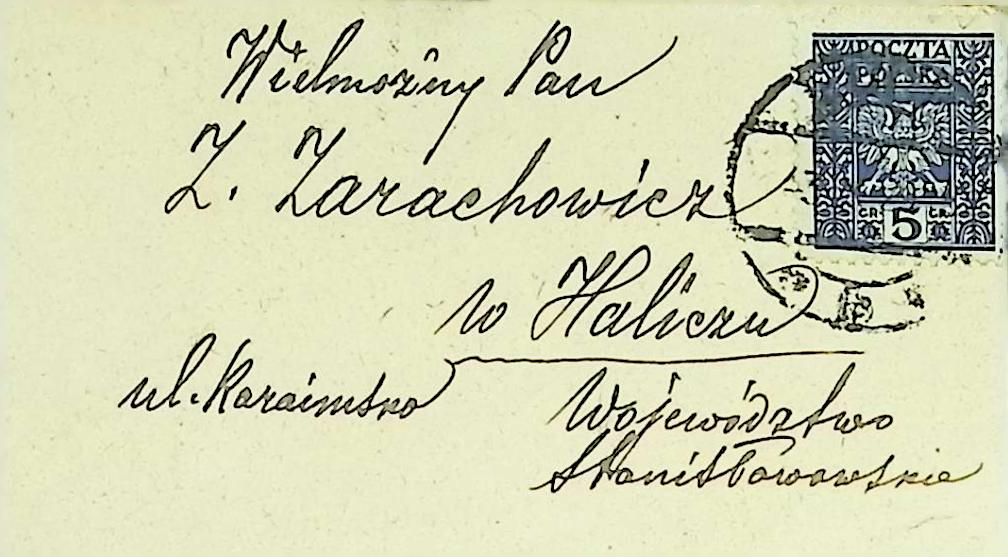 Wielmożny Pan
Z. Zarachowicz
w Haliczu
ul. Karaimska
Województwo
Stanisławowskie
POCZTA
POLSKA
GR 5 GR